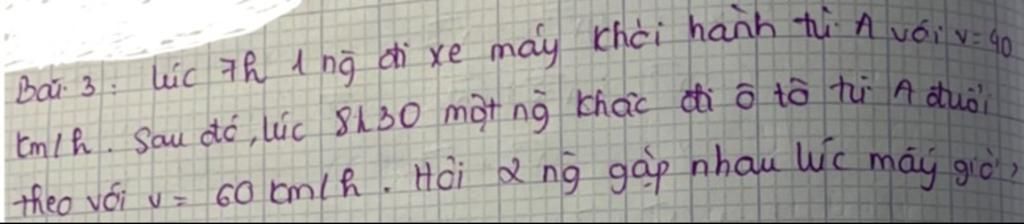 Bài 3: lúc 7h 1 ng̃ đi xe máy khởi hành từ A với v=40
km/h. Sau đó, lúc 8h30 một ng̃ khác đi ô tô từ A đuổi
theo với v= 60 km/h. Hỏi 2 ng̃ gặp nhau lúc mấy giờ?